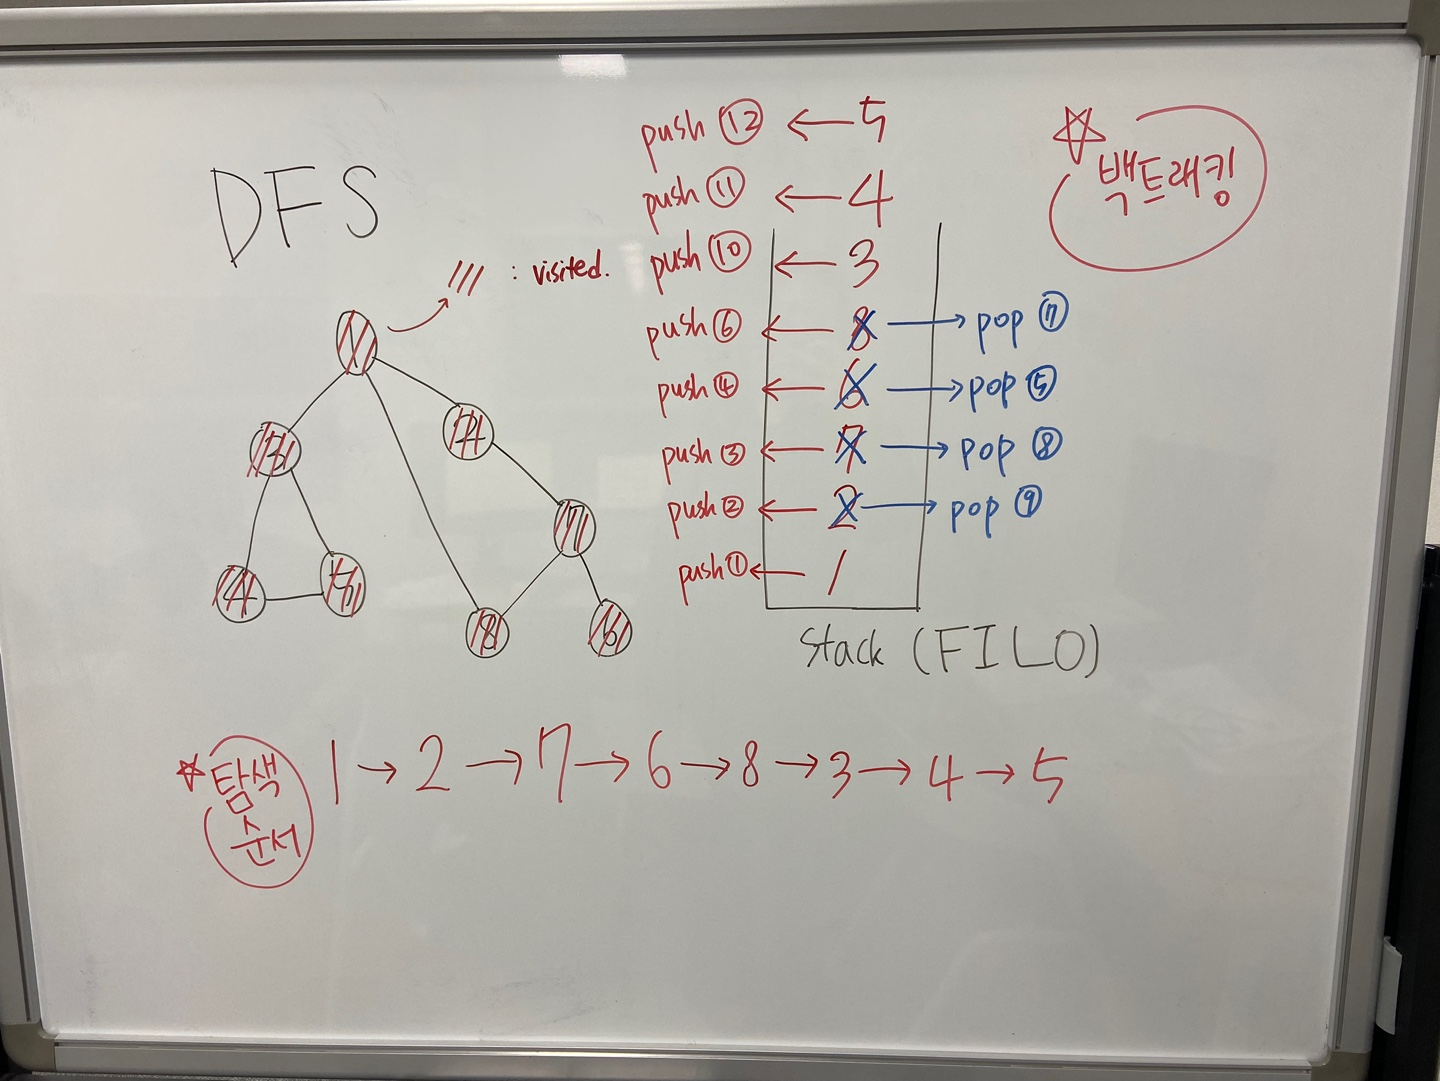 DFS
/// : visited.
1
3
2
7
4
5
8
6
push ⑫ ← 5
push ⑪ ← 4
push ⑩ ← 3
push ⑥ ← 8 → pop ⑦
push ④ ← 6 → pop ⑤
push ③ ← 7 → pop ⑧
push ② ← 2 → pop ⑨
push ① ← 1
Stack (FILO)
☆ 백트래킹
☆ 탐색
순서
1 → 2 → 7 → 6 → 8 → 3 → 4 → 5